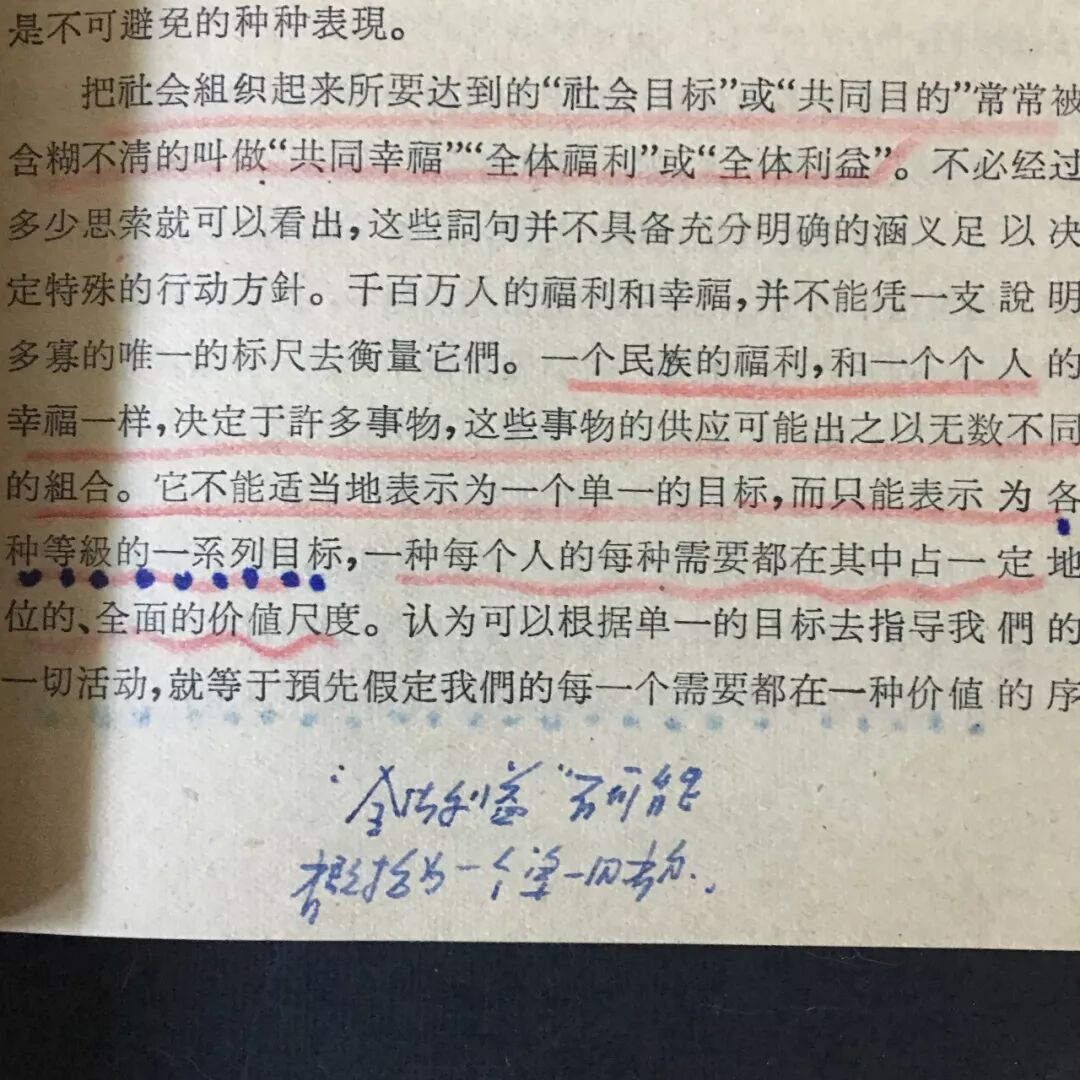 是不可避免的种种表現。
把社会組织起来所要达到的“社会目标”或“共同目的”常常被
含糊不清的叫做“共同幸福”“全体福利”或“全体利益”。不必经过
多少思索就可以看出，这些詞句并不具备充分明确的涵义足以决
定特殊的行动方針。千百万人的福利和幸福，并不能凭一支說明
多寡的唯一的标尺去衡量它們。一个民族的福利，和一个个人的
幸福一样，决定于許多事物，这些事物的供应可能出之以无数不同
的組合。它不能适当地表示为一个单一的目标，而只能表示为各
种等級的一系列目标，一种每个人的每种需要都在其中占一定地
位的、全面的价值尺度。认为可以根据单一的目标去指导我們的
一切活动，就等于預先假定我們的每一个需要都在一种价值的序
“全体利益”不可能
概括为一个单一目标.